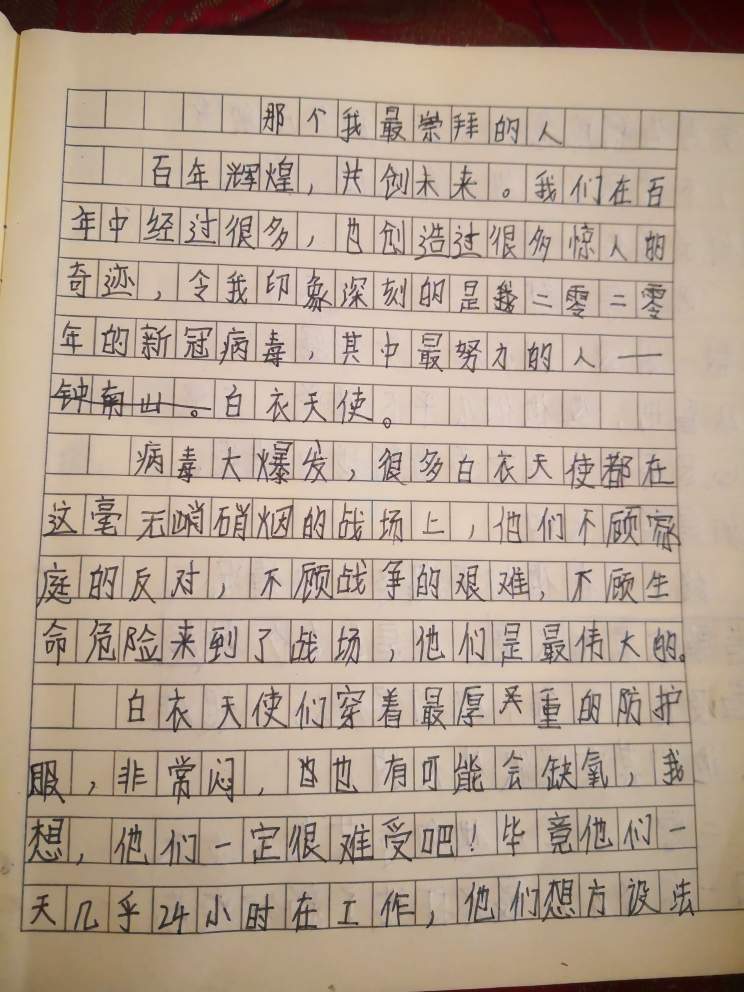 那个我最崇拜的人
百年辉煌，共创未来。我们在百
年中经过很多，也创造过很多惊人的
奇迹，令我印象深刻的是二零二零
年的新冠病毒，其中最努力的人——
钟南山。白衣天使。
病毒大爆发，很多白衣天使都在
这毫无硝烟的战场上，他们不顾家
庭的反对，不顾战争的艰难，不顾生
命危险来到了战场，他们是最伟大的。
白衣天使们穿着最厚重的防护
服，非常闷，也有可能会缺氧，我
想，他们一定很难受吧！毕竟他们一
天几乎24小时在工作，他们想方设法